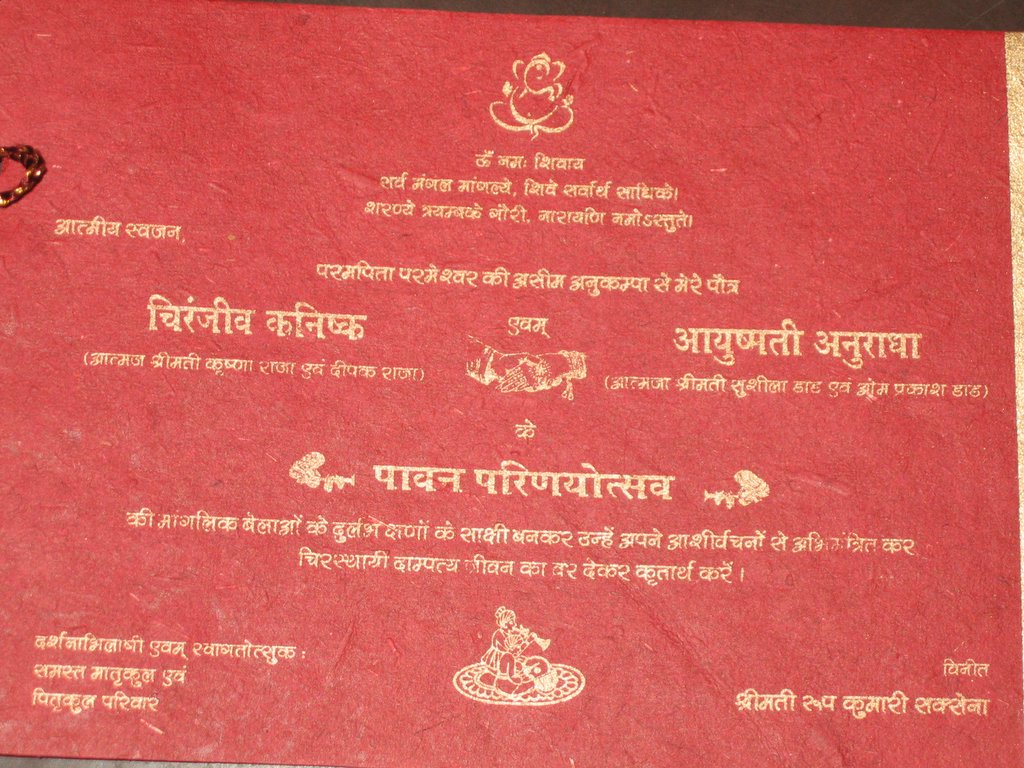 ॐ नमः शिवाय
सर्व मंगल मांगल्ये, शिवे सर्वार्थ साधिके।
शरण्ये त्रयम्बके गौरी, नारायणि नमोऽस्तुते।
आत्मीय स्वजन,
परमपिता परमेश्वर की असीम अनुकम्पा से मेरे पौत्र
चिरंजीव कनिष्क
(आत्मज श्रीमती कृष्णा राजा एवं दीपक राजा)
एवम्
आयुष्मती अनुराधा
(आत्मजा श्रीमती सुशीला डाड एवं ओम प्रकाश डाड)
के
पावन परिणयोत्सव
की मांगलिक बेलाओं के दुर्लभ क्षणों के साक्षी बनकर उन्हें अपने आशीर्वचनों से अभिमंत्रित कर
चिरस्थायी दाम्पत्य जीवन का वर देकर कृतार्थ करें।
दर्शनाभिलाषी एवम् स्वागतोत्सुक :
समस्त मातृकुल एवं
पितृकुल परिवार
विनीत
श्रीमती रूप कुमारी सक्सेना